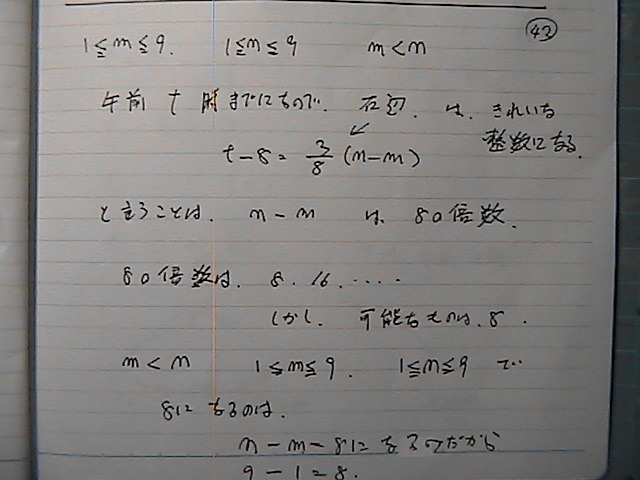 43
1≦m≦9. 1≦n≦9 m<n
午前 t 時までにもので. 右辺. は. きれいな
整数になる.
t-8= 3/8 (n-m)
と言うことは. n-m は 8の倍数.
8の倍数は. 8. 16. ....
しかし. 可能なものは. 8.
m<n 1≦m≦9. 1≦n≦9 で
8になるのは.
n-m=8になるのだから
9-1=8.